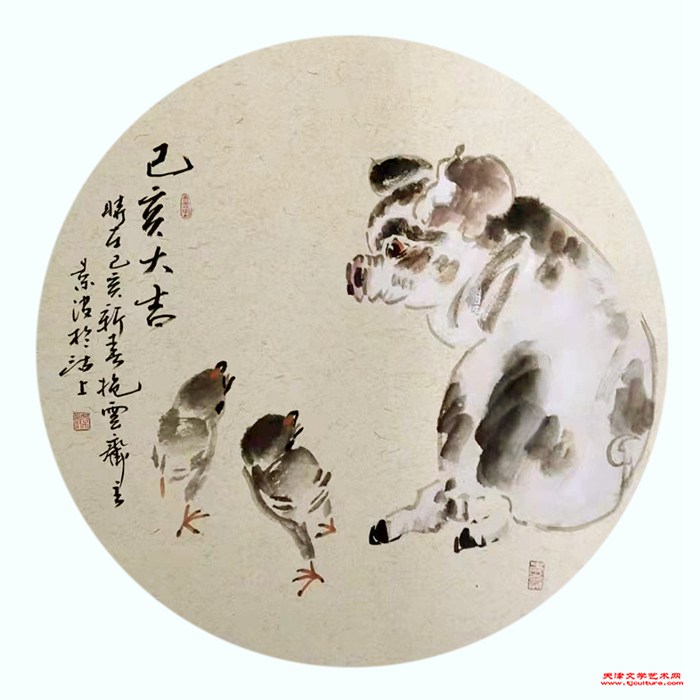 己亥大吉
時在己亥新春抱雲齋主
景波於沽上
天津文学艺术网
www.tjculture.com